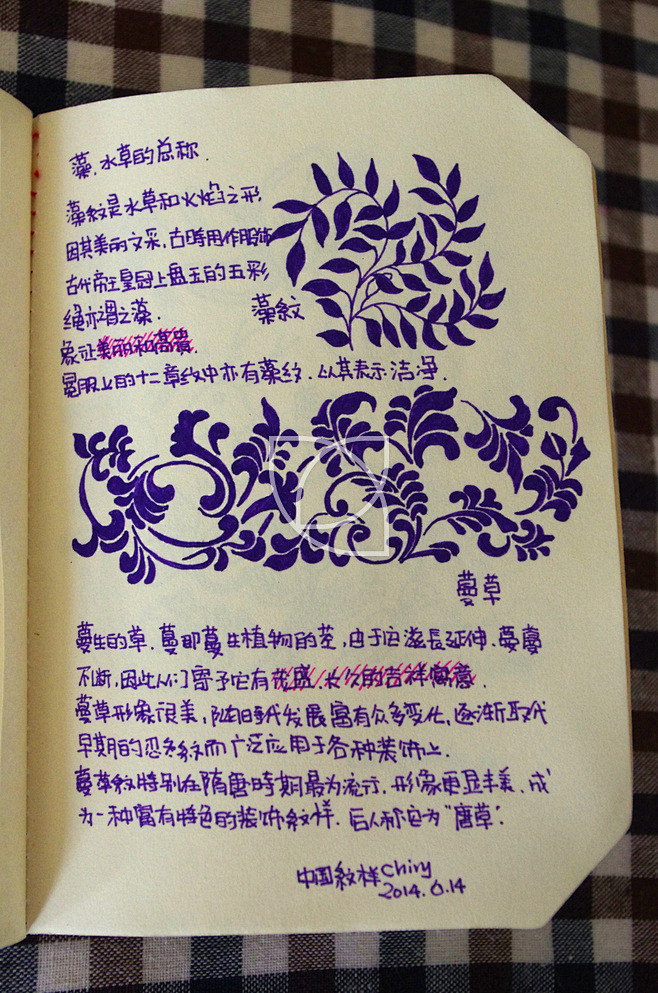 藻,水草的总称.
藻紋是水草和火焰之形
因其美丽的文采,古時用作服饰
古代帝王皇冠上盘玉的五彩
绳亦谓之藻.
藻紋
象征美丽和高貴.
冕服上的十二章纹中亦有藻纹.以其表示洁净.
蔓草
蔓生的草.蔓即蔓生植物的茎,由于它滋長延伸、蔓蔓
不断,因此人们寄予它有茂盛、长久的吉祥寓意.
蔓草形象很美,随时代发展富有众多变化,逐渐取代
早期的忍冬紋而广泛应用于各种装饰上.
蔓草紋特别在隋唐時期最为流行,形象更显丰美,成
为一种富有特色的装饰紋样.后人称它为"唐草".
中国紋样Chiny
2014.6.14